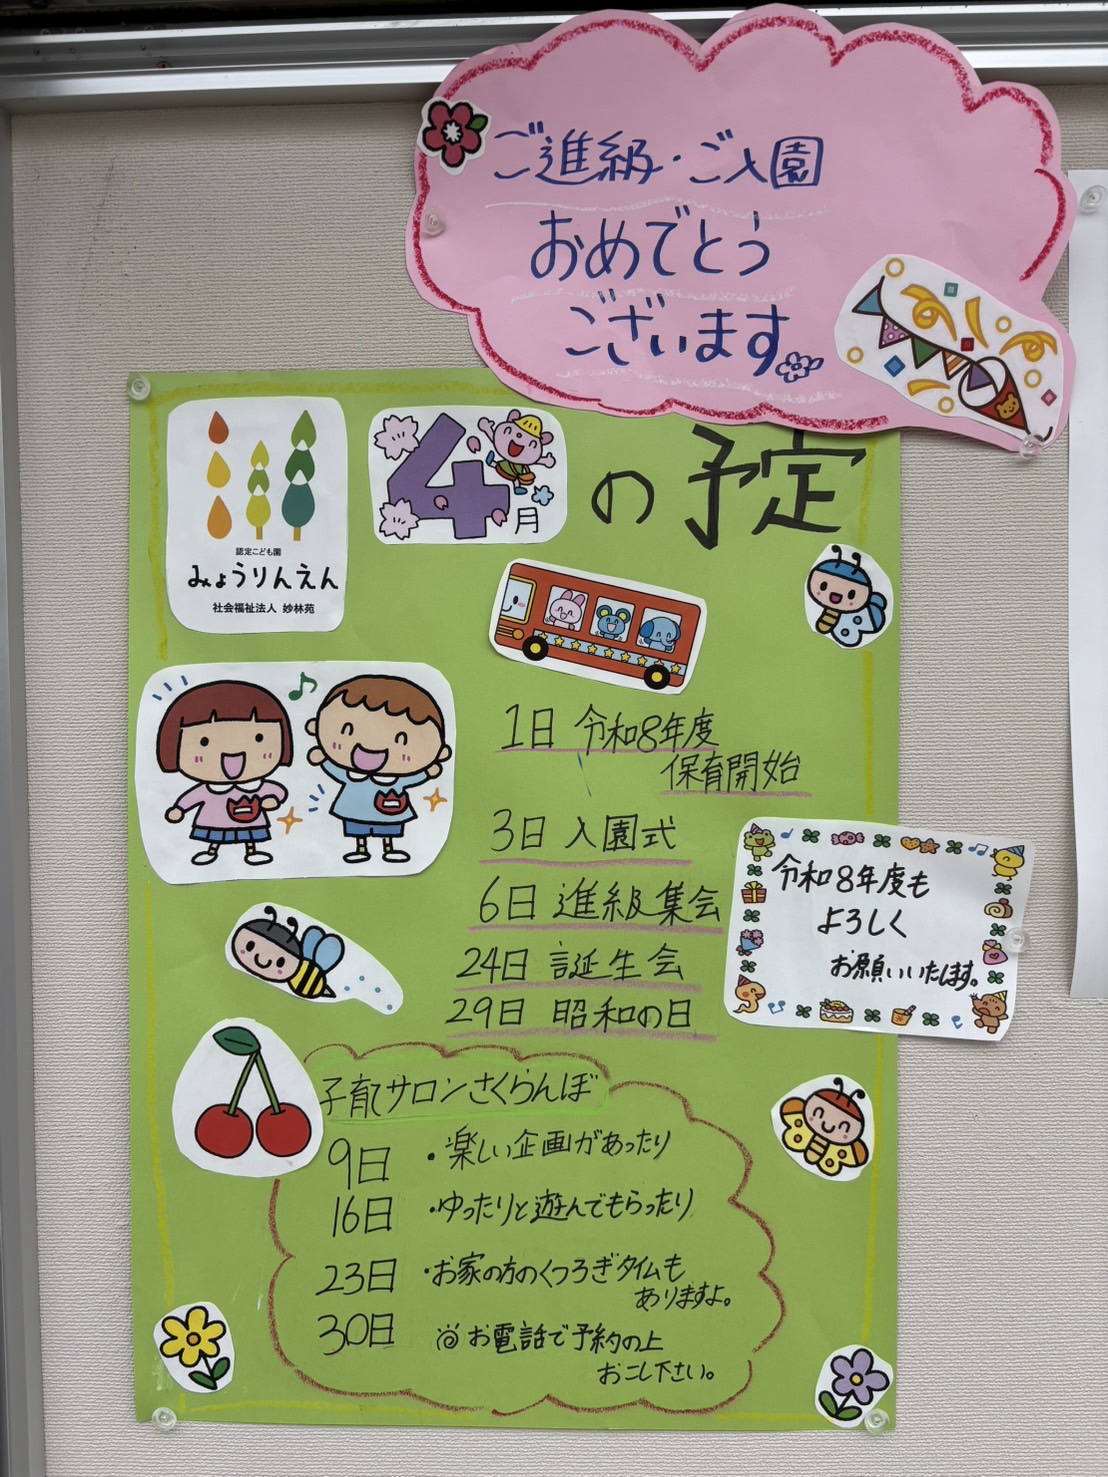 ご進級・ご入園
おめでとう
ございます
4月の予定
認定こども園
みょうりんえん
社会福祉法人 妙林苑
1日 令和8年度
保育開始
3日 入園式
6日 進級集会
24日 誕生会
29日 昭和の日
令和8年度も
よろしく
お願いいたします。
子育てサロンさくらんぼ
9日
16日
23日
30日
・楽しい企画があったり
・ゆったりと遊んでもらったり
・お家の方のくつろぎタイムも
ありますよ。
お電話で予約の上
おこし下さい。